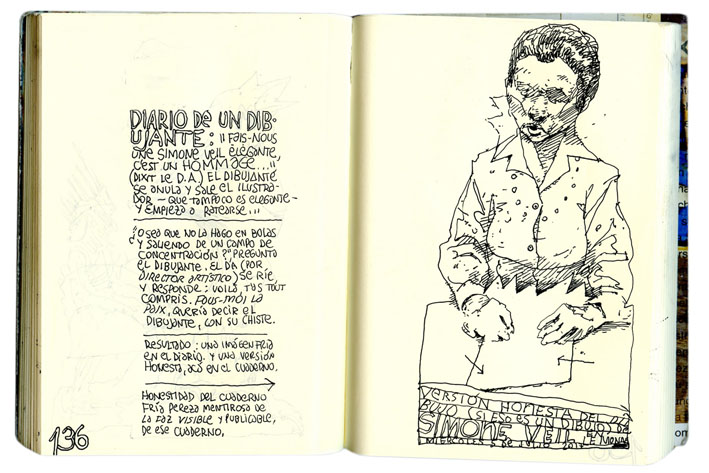 DIARIO DE UN DIB-
UJANTE: "FAIS-NOUS
UNE SIMONE VEIL ÉLÉGANTE,
C'EST UN HOMMAGE..."
(DIXIT LE D.A.) EL DIBUJANTE
SE ANULA Y SALE EL ILUSTRA-
DOR - QUE TAMPOCO ES ELEGANTE -
Y EMPIEZA A RATEARSE...
"O SEA QUE NO LA HAGO EN BOLAS
Y SALIENDO DE UN CAMPO DE
CONCENTRACIÓN?" PREGUNTA
EL DIBUJANTE. EL DA (POR
DIRECTOR ARTÍSTICO) SE RÍE
Y RESPONDE: VOILÀ, T'AS TOUT
COMPRIS. FOUS-MOI LA
PAIX, QUERÍA DECIR EL
DIBUJANTE, CON SU CHISTE.
RESULTADO: UNA IMÁGEN FRIA
EN EL DIARIO. Y UNA VERSIÓN
HONESTA, ACÁ EN EL CUADERNO.
HONESTIDAD DEL CUADERNO
FRÍA PEREZA MENTIROSA DE
LA FAZ VISIBLE Y PUBLICABLE,
DE ESE CUADERNO.
136
VERSIÓN HONESTA DEL DI
BUJO (SI ESO ES UN DIBUJO) DE
SIMONE VEIL
LE MONDE
MIERCOLES 5 DE JULIO 2017